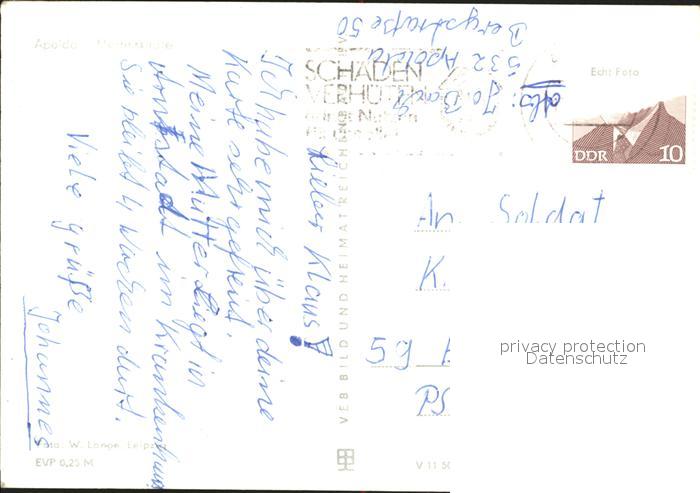 Apolda
Lieber Klaus!
Ich habe mich über deine
Karte sehr gefreut.
Meine Mutter liegt in
Arnstadt im Krankenhaus
Sie bleibt 4 Wochen dort.
Viele Grüße
Johannes
Foto: W. Lange, Leipzig
EVP 0,25 M
VEB BILD UND HEIMAT REICHENBACH
V 11 50
SCHÄDEN
VERHÜTEN
Abs: Jo. 
532 Apolda
Bergstraße 50
Echt Foto
DDR 10
An Soldat
K.
59
PS
privacy protection
Datenschutz